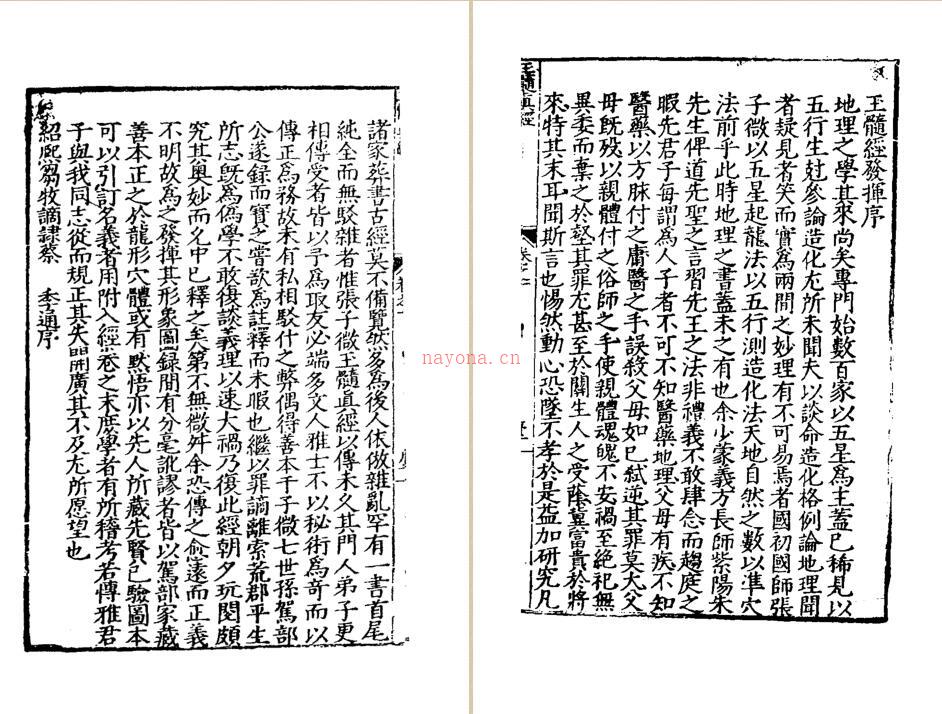 玉髓經發揮序
地理之學其來尚矣專門始數百家以五星爲主蓋已稀見以
五行生尅參論造化尤所未聞夫以談命造化格例論地理聞
者疑見者笑而實爲兩間之妙理有不可易焉者國初國師張
子微以五星起龍法以五行測造化法天地自然之數以準穴
法前乎此時地理之書蓋未之有也余少蒙義方長師紫陽朱
先生俾道先聖之言習先王之法非禮義不敢肆念而趨庭之
暇先君子每謂爲人子者不可不知醫藥地理父母有疾不知
醫藥以方脉付之庸醫之手誤殺父母如已弑逆其罪莫大父
母旣殁以親體付之俗師之手使親體魂魄不安禍至絕祀無
異委而棄之於壑其罪尤甚至於關生人之受蔭冀富貴於將
來特其末耳聞斯言也惕然動心恐墮不孝於是益加研究凡
玉髓真經
諸家葬書古經莫不備覽然多爲後人依倣雜亂罕有一書首尾
純全而無駁雜者惟張子微玉髓真經以傳未久其門人弟子更
相傳受者皆以予爲取友必端多文人雅士不以秘術爲奇而以
傳正爲務故未有私相駁什之弊偶得善本于子微七世孫駕部
公遂録而寳之嘗欲爲註釋而未暇也繼以罪謫離索荒郡平生
所志旣爲僞學不敢復談義理以速大禍乃復此經朝夕玩閱頗
究其奥妙而名中已釋之矣第不無微舛余恐傳之愈遠而正義
不明故爲之發揮其形象圖録間有分毫訛謬者皆以駕部家藏
善本正之於龍形穴體或有默悟亦以先人所藏先賢已驗圖本
可以引訂名義者用附入經卷之末庶學者有所稽考若傳雅君
子與我同志從而規正其失開廣其不及尤所愿望也
紹熙芻牧謫隷蔡 季通序
nayona.cn